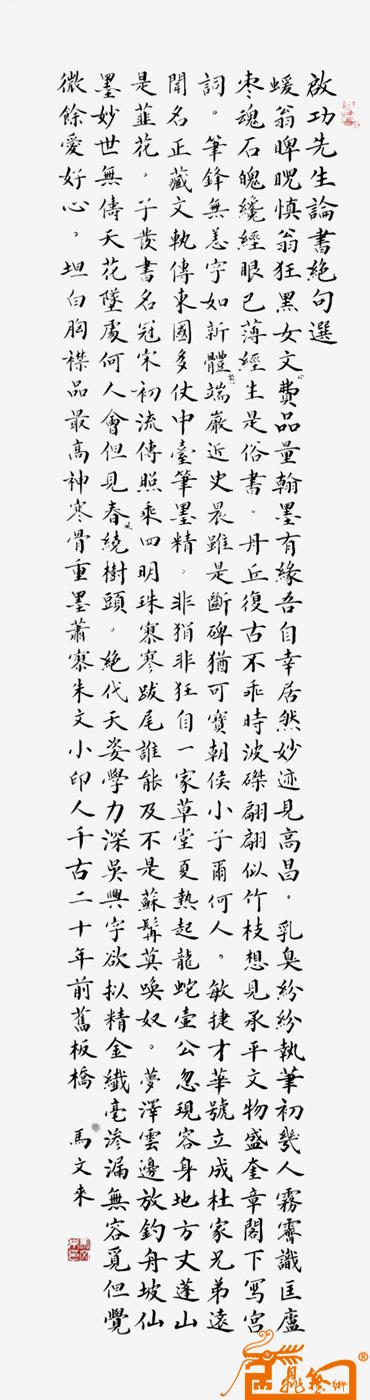 啟功先生論書絕句選
蝯翁睥睨慎翁狂黑女文費品量翰墨有緣吾自幸居然妙迹見高昌。乳臭紛紛執筆初幾人霧霽識匡廬
棗魂石魄纔經眼已薄經生是俗書。丹丘復古不乖時波磔翩翩似竹枝想見承平文物盛奎章閣下寫宮
詞。筆鋒無恙字如新體端嚴近史晨雖是斷碑猶可寶朝侯小子爾何人。敏捷才華號立成杜家兄弟遠
聞名正藏文軌傳東國多仗中臺筆墨精。非狷非狂自一家草堂夏熱起龍蛇壺公忽現容身地方丈蓬山
是韮花。子發書名冠宋初流傳照乘四明珠寨寒跋尾誰能及不是蘇髯莫喚奴。夢澤雲邊放釣舟坡仙
墨妙世無儔天花墜處何人會但見春繞樹頭。絕代天姿學力深吳興字欲拟精金纖毫滲漏無容覓但覺
微餘愛好心。坦白胸襟品最高神寒骨重墨蕭寥朱文小印人千古二十年前舊板橋 馬文來